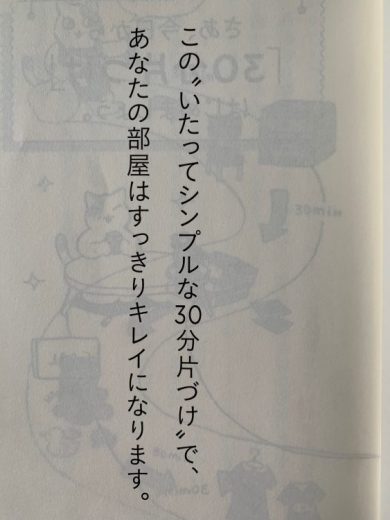 この〝いたってシンプルな30分片づけ〟で、
あなたの部屋はすっきりキレイになります。